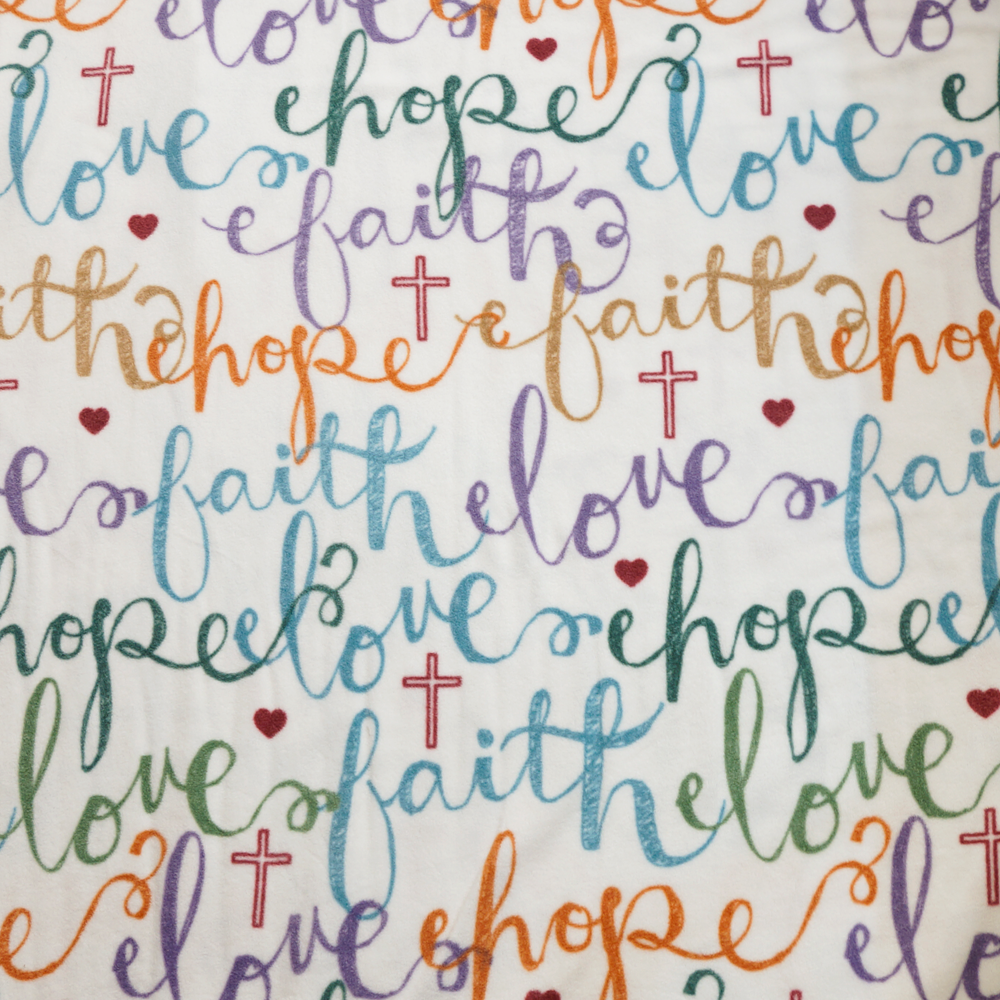 love hope love
hope
love love
faith
faith hope faith hope
faith love fai
hope love hope
love faith love
love hope